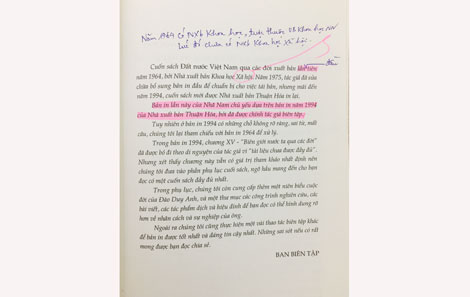 Năm 1964 có NXb Khoa học, trực thuộc UB Khoa học NN
Lúc đó chưa có NXb Khoa học Xã hội.
Cuốn sách Đất nước Việt Nam qua các đời xuất bản lần đầu
năm 1964, bởi Nhà xuất bản Khoa học Xã hội. Năm 1975, tác giả đã sửa
chữa bổ sung bản in đầu để chuẩn bị cho tái bản, nhưng mãi đến
năm 1994, cuốn sách mới được Nhà xuất bản Thuận Hóa in lại.
Bản in lần này của Nhã Nam chủ yếu dựa trên bản in năm 1994
của Nhà xuất bản Thuận Hóa, bởi đã được chính tác giả biên tập.
Tuy nhiên ở bản in 1994 có những chỗ không rõ ràng, sai từ, mất
câu, chúng tôi lại tham chiếu với bản in 1964 để xử lý.
Trong bản in 1994, chương XV - "Biên giới nước ta qua các đời"
đã được bỏ đi theo di nguyện của tác giả vì "tài liệu chưa được đầy đủ".
Nhưng xét thấy chương này vẫn có giá trị tham khảo nhất định nên
chúng tôi đưa vào phần phụ lục cuối sách, ngõ hầu mang đến cho bạn
đọc có một cuốn sách đầy đủ nhất.
Trong phụ lục, chúng tôi còn cung cấp thêm một niên biểu cuộc
đời của Đào Duy Anh, và một thư mục các công trình nghiên cứu, các
bài viết, các tác phẩm dịch và hiệu đính để bạn đọc có thể hình dung rõ
hơn về nhân cách và sự nghiệp của ông.
Ngoài ra chúng tôi cũng thực hiện một vài thao tác biên tập khác
để bản in được tốt nhất và đáng tin cậy nhất. Những sai sót nếu có rất
mong được bạn đọc chia sẻ.
BAN BIÊN TẬP